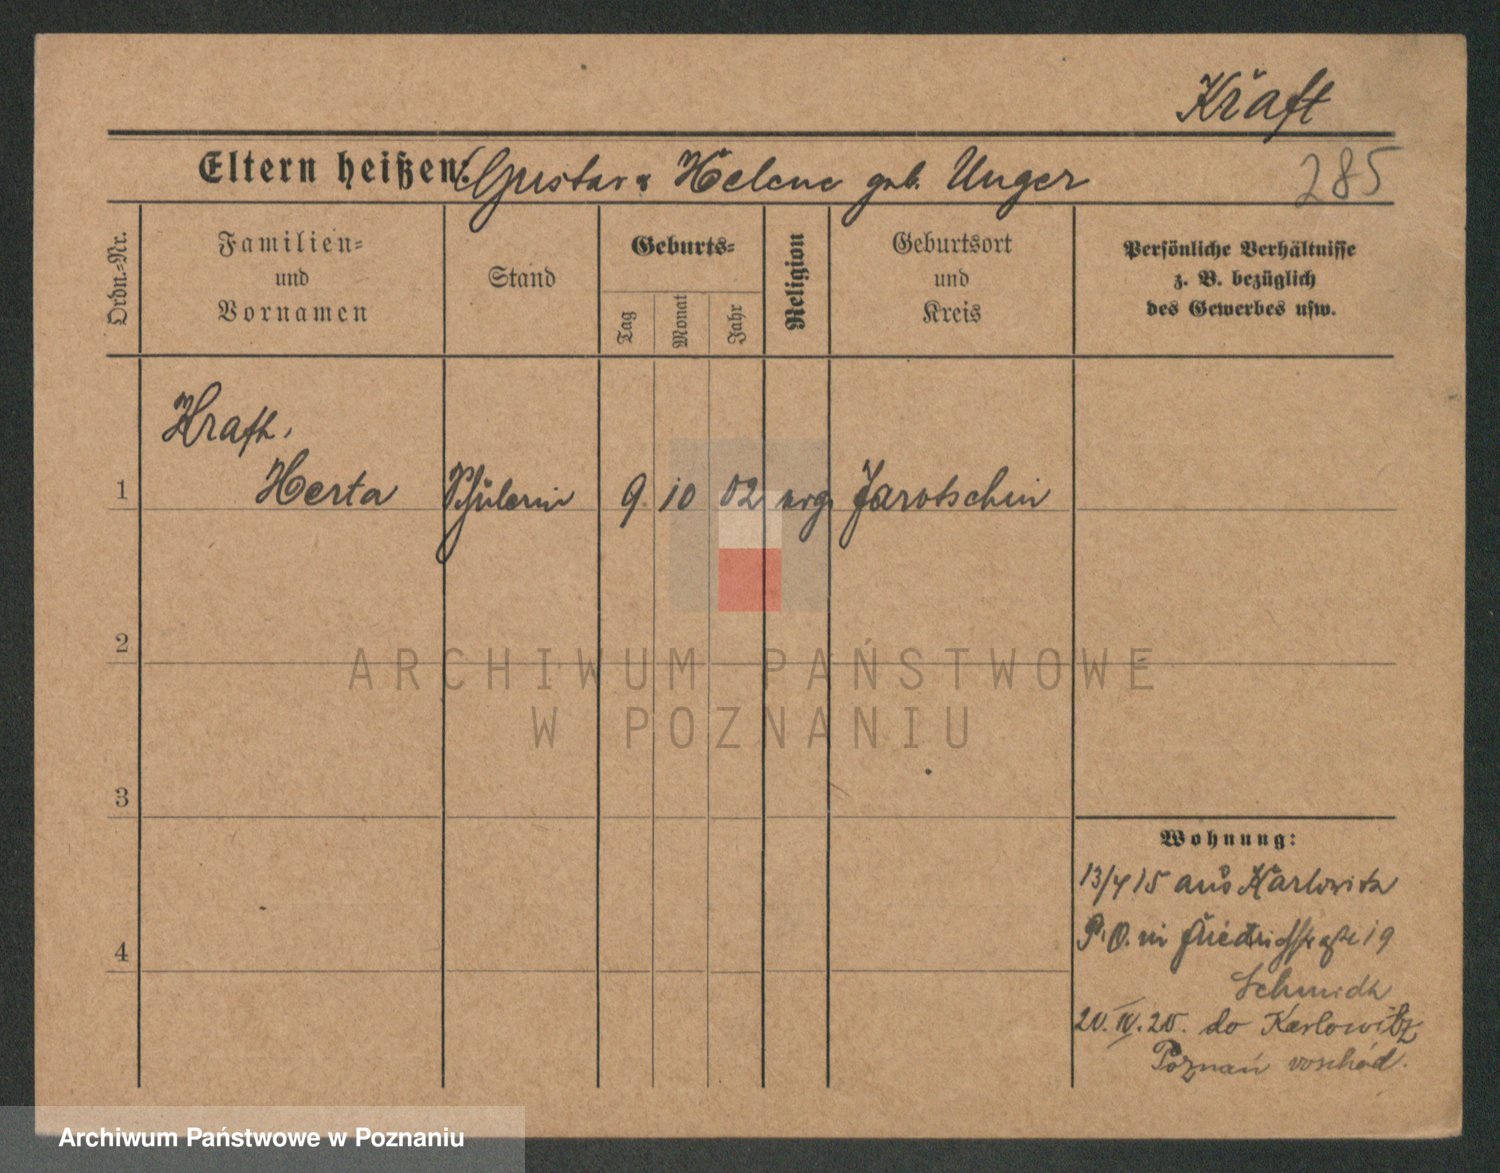 Kraft
Eltern heißen: Gustav u Helene geb. Unger
285
Ordn.=Nr.
Familien=
und
Vornamen
Stand
Geburts=
Tag
Monat
Jahr
Religion
Geburtsort
und
Kreis
Persönliche Verhältnisse
z. B. bezüglich
des Gewerbes usw.
Kraft,
1 Herta Schülerin 9 10 02 evg. Jarotschin
2
3
4
Wohnung:
13/4 15 aus Karlowitz
P. O. in Friedrichstraße 19
Schmidt
20.IV.20. do Karlowitz
Poznań wschód.
ARCHIWUM PAŃSTWOWE
W POZNANIU
Archiwum Państwowe w Poznaniu